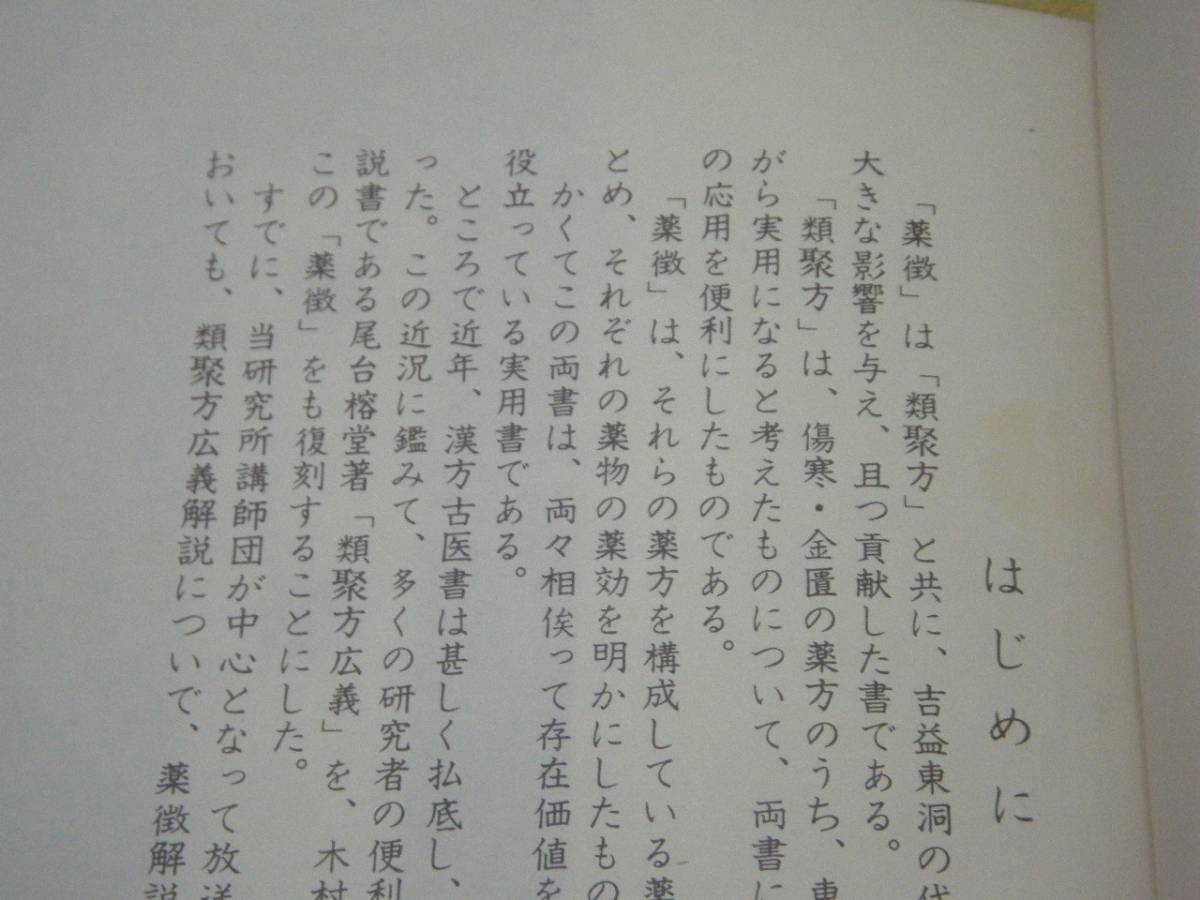 はじめに
「薬徴」は「類聚方」と共に、吉益東洞の代
大きな影響を与え、且つ貢献した書である。
「類聚方」は、傷寒・金匱の薬方のうち、東
がら実用になると考えたものについて、両書に
の応用を便利にしたものである。
「薬徴」は、それらの薬方を構成している薬
とめ、それぞれの薬物の薬効を明かにしたもの
かくてこの両書は、両々相俟って存在価値を
役立っている実用書である。
ところで近年、漢方古医書は甚しく払底し、
った。この近況に鑑みて、多くの研究者の便利
説書である尾台榕堂著「類聚方広義」を、木村
この「薬徴」をも復刻することにした。
すでに、当研究所講師団が中心となって放送
おいても、類聚方広義解説についで、薬徴解説